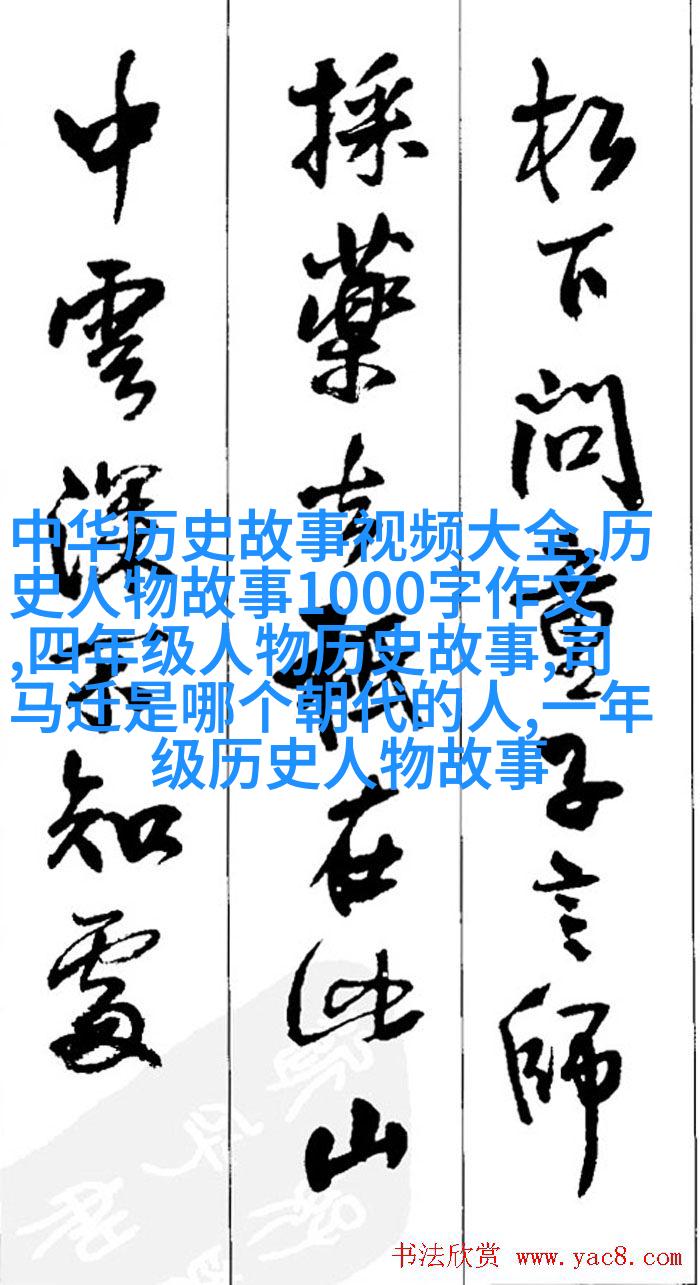 松下问童子言師
採藥去秖在此山
中雲深不知處
中华历史故事视频大全,历
史人物故事1000字作文
,四年级人物历史故事,司
马迁是哪个朝代的人,一年
级历史人物故事
书法欣赏 www.yac8.com